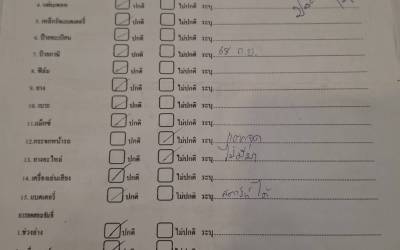 5. เหล็กรัดแบตเตอรี่ ปกติ ไม่ปกติ ระบุ
6. ป้ายทะเบียน ปกติ ไม่ปกติ ระบุ
7. ป้ายภาษี ปกติ ไม่ปกติ ระบุ 68 ก.ย.
8. ฟิล์ม ปกติ ไม่ปกติ ระบุ
9. ยาง ปกติ ไม่ปกติ ระบุ
10. เบาะ ปกติ ไม่ปกติ ระบุ
11.แม็กซ์ ปกติ ไม่ปกติ ระบุ
12.กระจกหน้ารถ ปกติ ไม่ปกติ ระบุ
13. ยางอะไหล่ ปกติ ไม่ปกติ ระบุ ไม่มีมา
14. เครื่องเล่นเสียง ปกติ ไม่ปกติ ระบุ
15. แบตเตอรี่ ปกติ ไม่ปกติ ระบุ สตาร์ทได้
1.ช่วงล่าง ปกติ ไม่ปกติ ระบุ